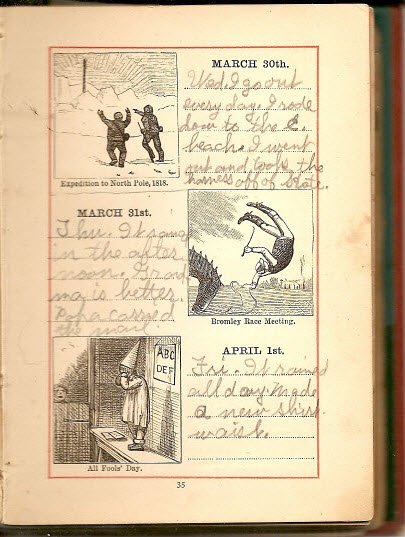 MARCH 30th.
Wed. I go out
every day. I rode
down to the E.
beach. I went
out and took the
harness off of Kate.
Expedition to North Pole, 1818.
MARCH 31st.
Thu. It rained
in the after
noon. Grand
ma is better.
Papa carried
the mail
Bromley Race Meeting.
ABC
DEF
All Fools' Day.
APRIL 1st.
Fri. It rained
all day. Made
a new shirt
waist.
35